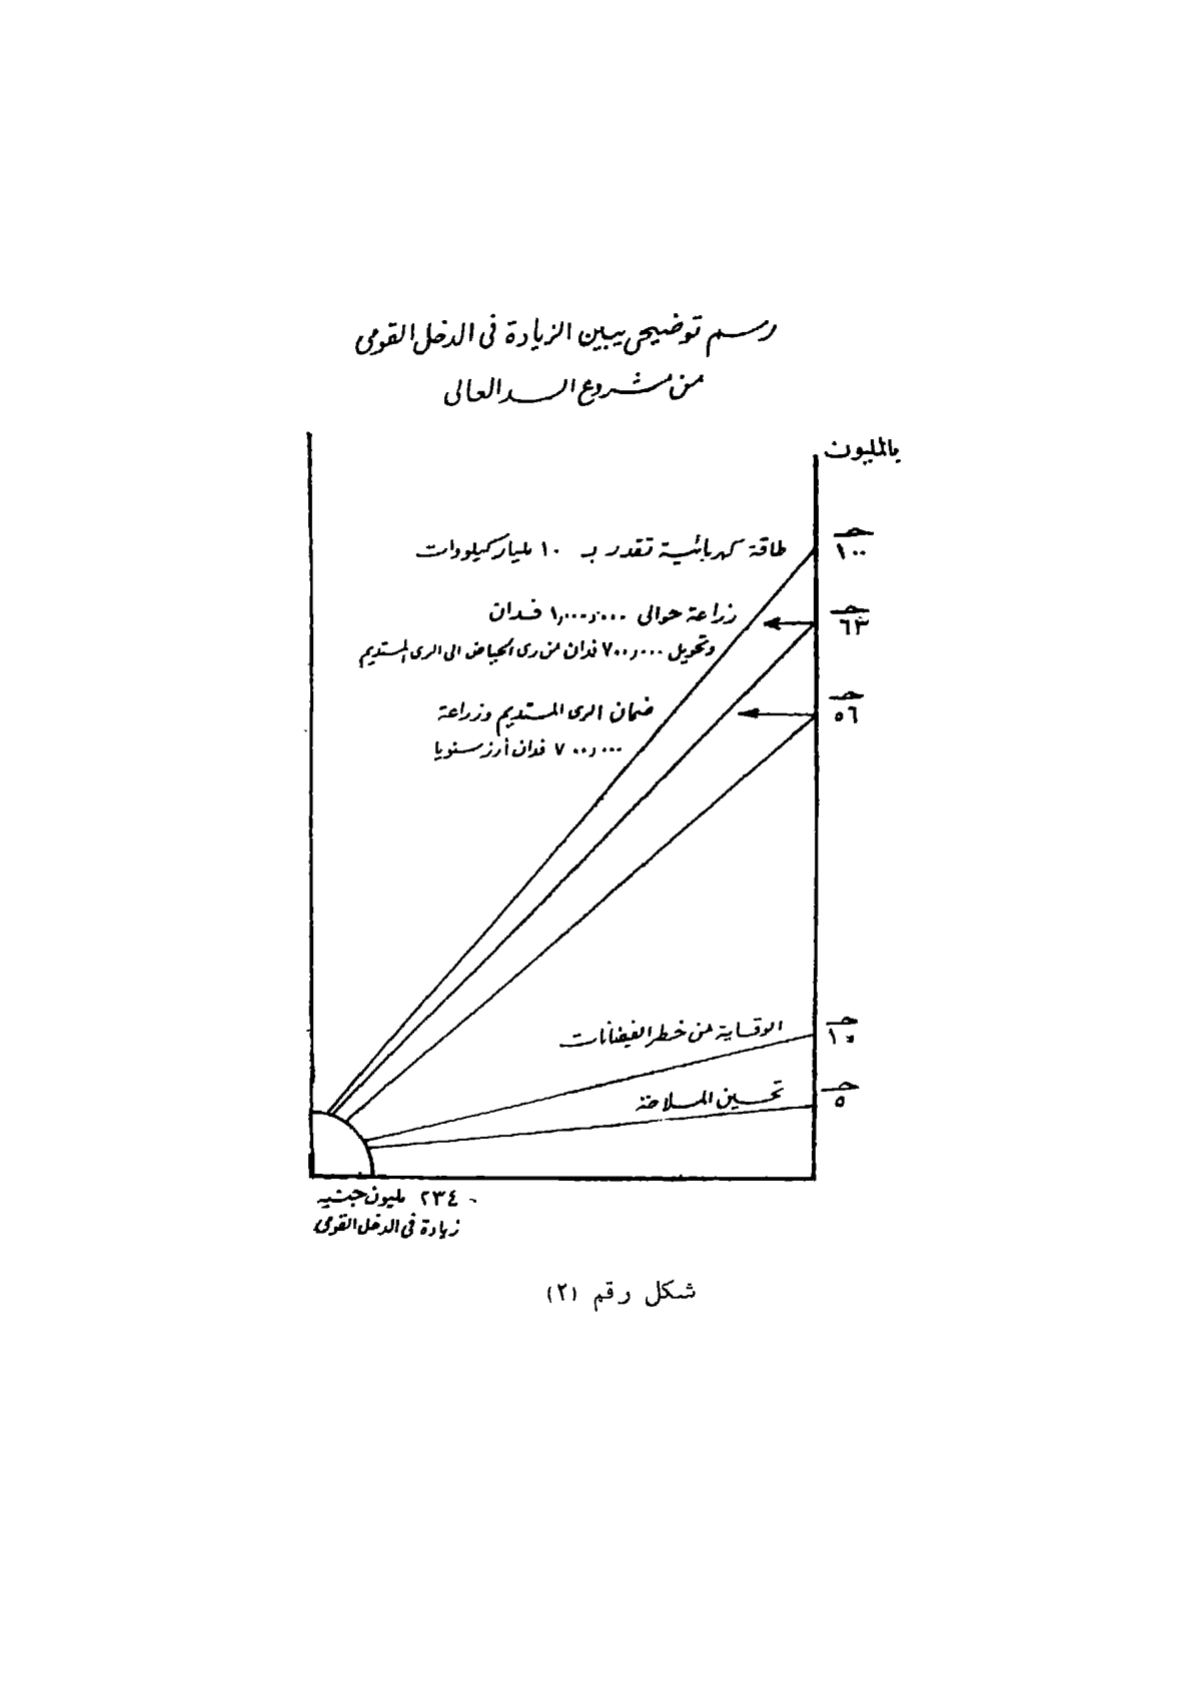 رسم توضيحى يبين الزيادة فى الدخل القومى
من مشروع السد العالى
بالمليون
جـ
١٠٠
طاقة كهربائية تقدر بـ ١٠ مليار كيلووات
جـ
٦٣
زراعة حوالى ١,٠٠٠,٠٠٠ فدان
وتحويل ٧٠٠,٠٠٠ فدان من رى الحياض الى الرى المستديم
جـ
٥٦
ضمان الرى المستديم وزراعة
٧٠٠,٠٠٠ فدان أرز سنويا
جـ
١٠
الوقاية من خطر الفيضانات
جـ
٥
تحسين الملاحة
٢٣٤ مليون جنيه
زيادة فى الدخل القومى
شكل رقم (٢)